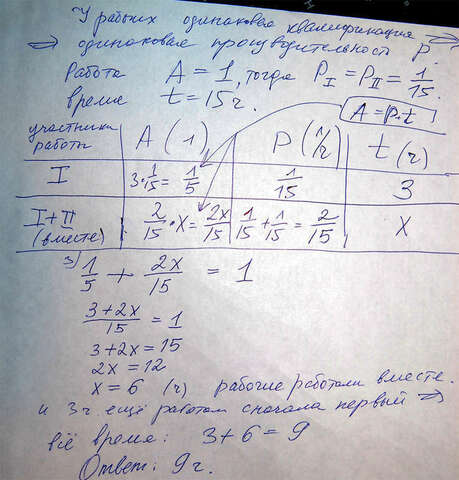 У рабочих одинаковая квалификация ⇒
⇒ одинаковая производительность P.
Работа A = 1, тогда P_I = P_II = 1/15.
время t = 15 ч.
A = P·t
участники работы | A (1) | P (1/ч) | t (ч)
I | 3·1/15 = 1/5 | 1/15 | 3
I+II (вместе) | 2/15·x = 2x/15 | 1/15 + 1/15 = 2/15 | x
3) 1/5 + 2x/15 = 1
(3+2x)/15 = 1
3+2x=15
2x=12
x = 6 (ч) рабочие работали вместе.
и 3ч. ещё работал сначала первый ⇒
всё время: 3+6=9
Ответ: 9ч.